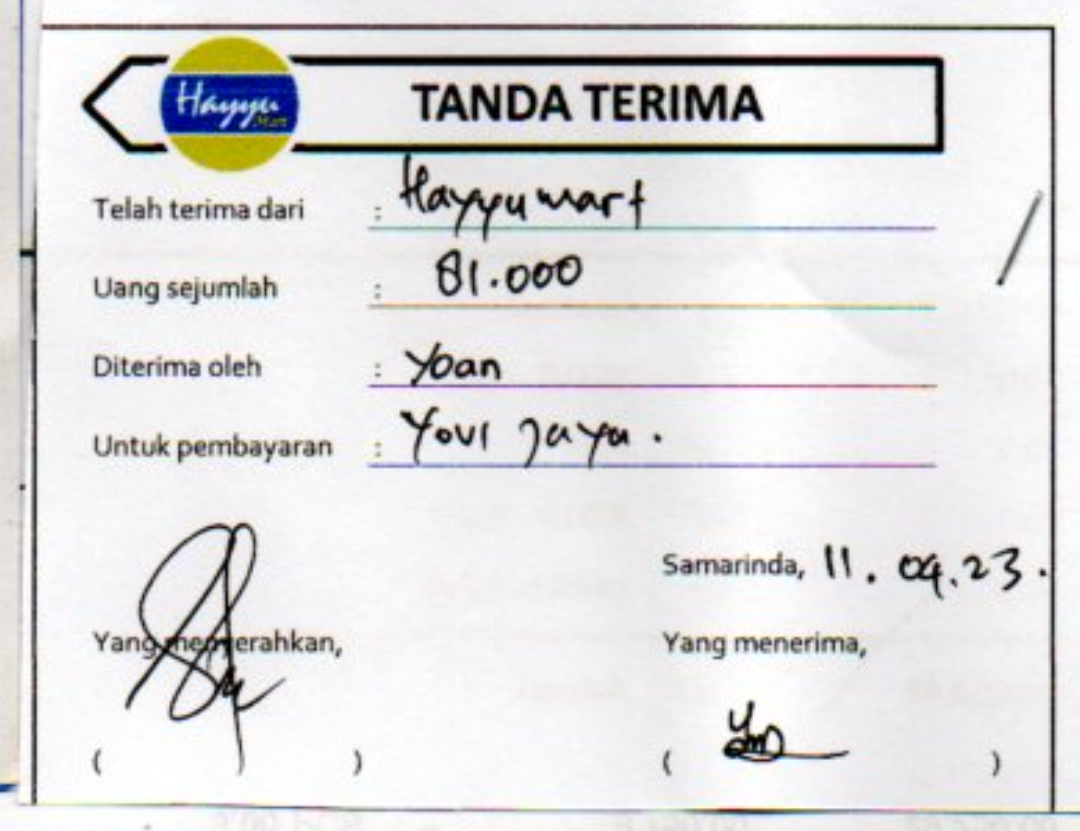 Hayyu
Mart
TANDA TERIMA
Telah terima dari : Hayyu mart
Uang sejumlah : 81.000
Diterima oleh : Yoan
Untuk pembayaran : Yovi Jaya.
Samarinda, 11.09.23.
Yang menyerahkan,
Yang menerima,
( )
( )